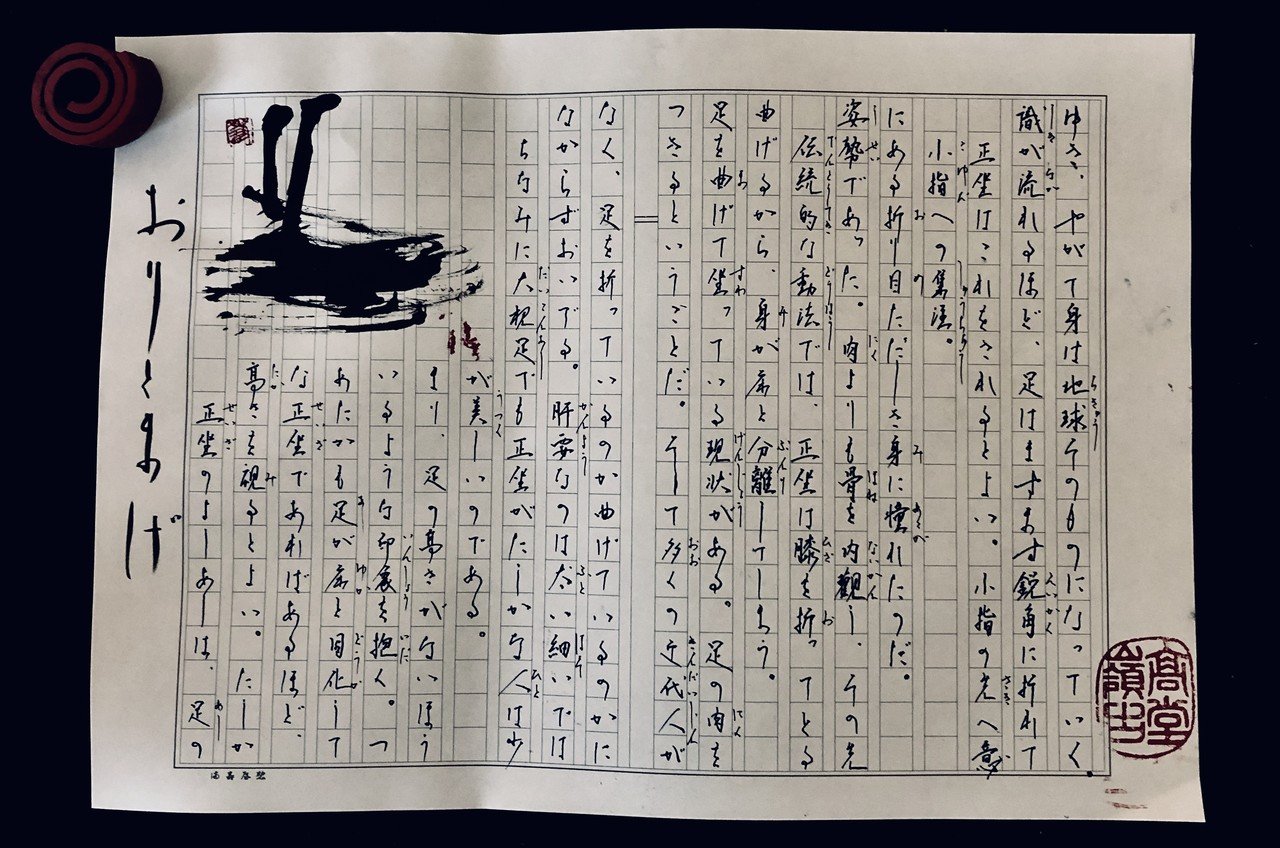 おりとまげ
正坐のよしあしは、足の
高さを視るとよい。たしか
な正坐であればあるほど、
あたかも足が床と同化して
いるような印象を抱く。つ
まり、足の高さがないほう
が美しいのである。
ちなみに大根足でも正坐がたしかな人は少
なからずおいでる。肝要なのは太い細いでは
なく、足を折っているのか曲げているのかに
つきるということだ。そして多くの近代人が
足を曲げて坐っている現状がある。足の肉を
曲げるから、身が床と分離してしまう。
伝統的な動法では、正坐は膝を折ってとる
姿勢であった。肉よりも骨を内観し、その先
にある折り目ただしき身に憧れたのだ。
小指への集注。
正坐はこれをされるとよい。小指の先へ意
識が流れるほど、足はますます鋭角に折れて
ゆき、やがて身は地球そのものになっていく。
高堂